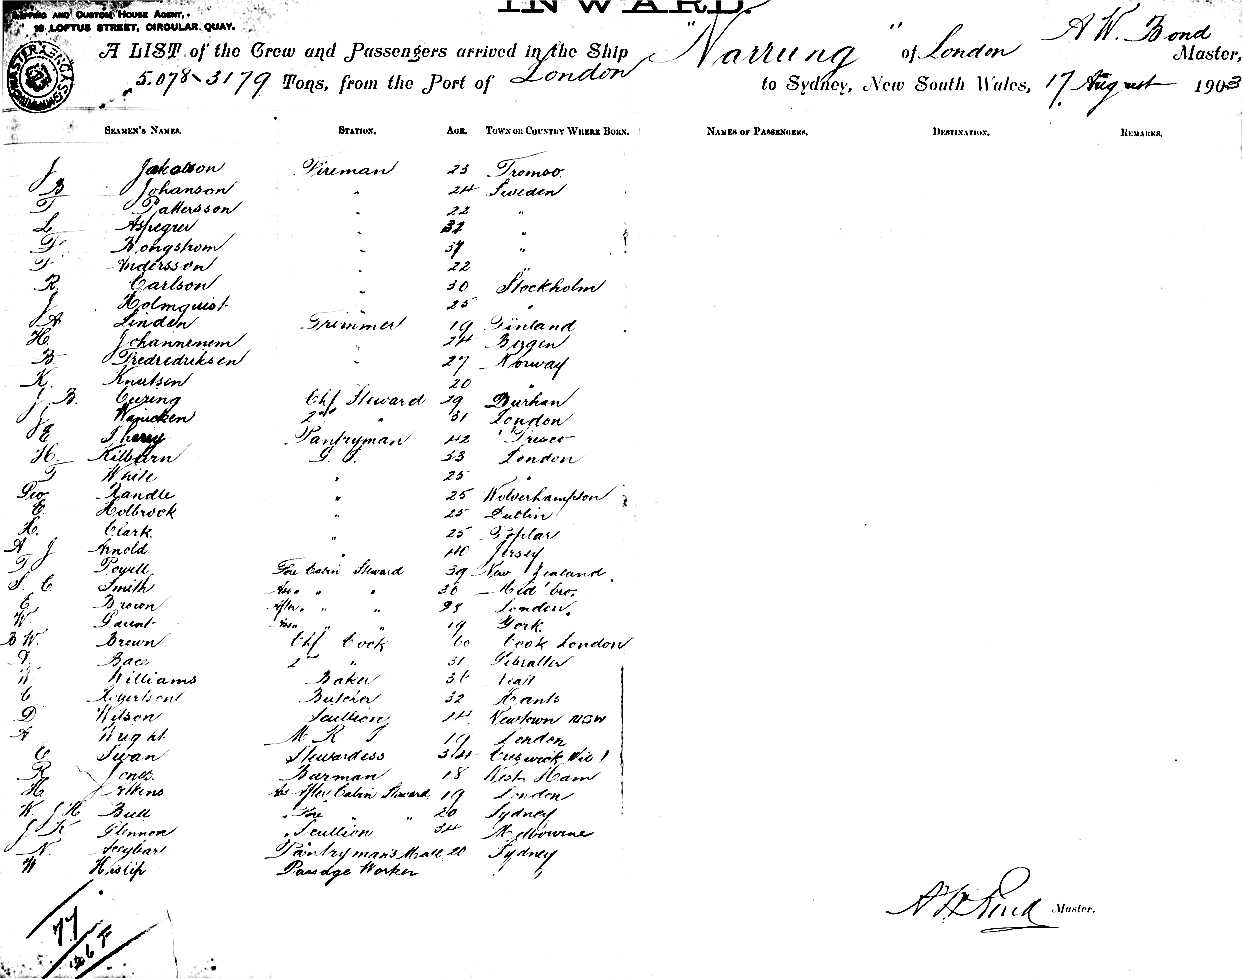 INWARD.
AND CUSTOM HOUSE AGENT,
LOFTUS STREET, CIRCULAR QUAY.
A LIST of the Crew and Passengers arrived in the Ship "Narrung" of London A W. Bond Master,
5.078 3179 Tons, from the Port of London to Sydney, New South Wales, 17 August 1903
SEAMEN'S NAMES. STATION. AGE. TOWN OR COUNTRY WHERE BORN. NAMES OF PASSENGERS. DESTINATION. REMARKS.
J Fireman 23 Tromso
B Johanson " 24 Sweden
T Pattersson " 22 "
L Aspegren " 32 "
T Bongstrom " 37 "
T Andersson " 22 "
R Carlson " 30 Stockholm
J Holmquist " 25 "
J A Linden Trimmer 19 Finland
H Johannenem " 24 Bergen
B Fredredriksen " 27 Norway
K Knutsen 20 "
J B. Chf Steward 29 Durhan
J 2nd " 31 London
E Pantryman 42 Tresco
H Kilburn G. S. 33 London
T White " 25 "
Geo Randle " 25 Wolverhampton
E Holbrook " 25 Dublin
H. Clark " 25 Poplar
A J Arnold " 40 Jersey
T Powell Fore Cabin Steward 39 New Zealand
S C Smith " " 30
E Brown After " " London.
W Gaunt " " 19 York.
B W. Brown Chf Cook 60 Cook London
2nd " 31 Gibralter
W Williams Baker
C Butcher 32 Hants
D Wilson Scullion 14 Newtown NSW
A Wright M R S 19 London
C Swan Stewardess 34 Creswick Vic
R Jones Burman 18 West Ham
H Atkins Ass After Cabin Steward 19 London
W J H Bull " Fore " " 20 Sydney
J K Glennon " Scullion 34 Melbourne
N Pantryman's Mate 20 Sydney
W Hislip Passage Worker "
A W Bond Master.
77
126 F